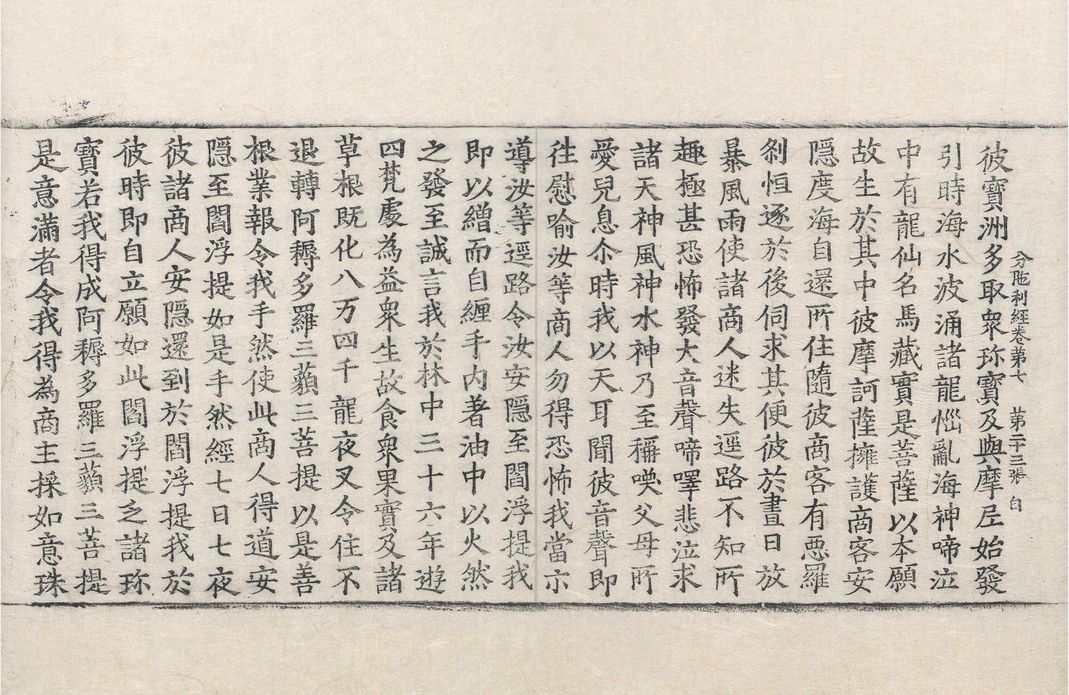 彼寶洲多取衆珎寶及與摩尼始發
分陁利經卷第七 第二十三張 白
引時海水波涌諸龍惱亂海神啼泣
中有龍仙名馬藏實是菩薩以本願
故生於其中彼摩訶薩擁護商客安
隱度海自還所住隨彼商客有惡羅
剎恒逐於後伺求其便彼於晝日放
暴風雨使諸商人迷失逕路不知所
趣極甚恐怖發大音聲啼哭悲泣求
諸天神風神水神乃至稱喚父母所
愛兒息尒時我以天耳聞彼音聲即
往慰喻汝等商人勿得恐怖我當示
導汝等逕路令汝安隱至閻浮提我
即以繒而自纏手內著油中以火然
之發至誠言我於林中三十六年遊
四梵處為益衆生故食衆果實及諸
草根既化八万四千龍夜叉令住不
退轉阿耨多羅三藐三菩提以是善
根業報令我手然使此商人得道安
隱至閻浮提如是手然經七日七夜
彼諸商人安隱還到於閻浮提我於
彼時即自立願如此閻浮提乏諸珎
寶若我得成阿耨多羅三藐三菩提
是意滿者令我得為商主採如意珠